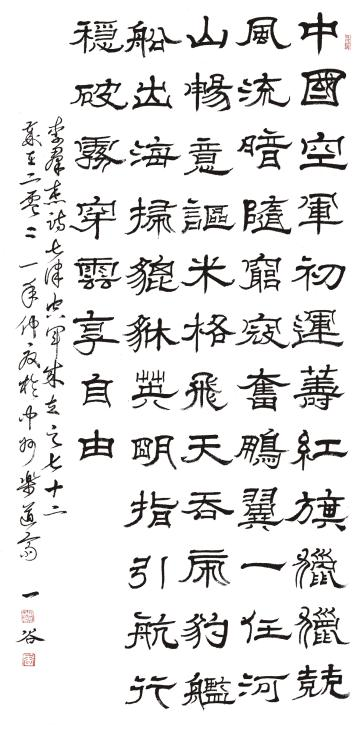 中國空軍初運籌紅旗獵獵競
風流暗隨窮寇奮鵬翼一任河
山暢意謳米格飛天吞虎豹艦
船出海掃貔貅英明指引航行
穩破霧穿雲享自由
詩七律空軍成立之七十二
歲在二零二一年仲夏於中州樂道齋
一谷